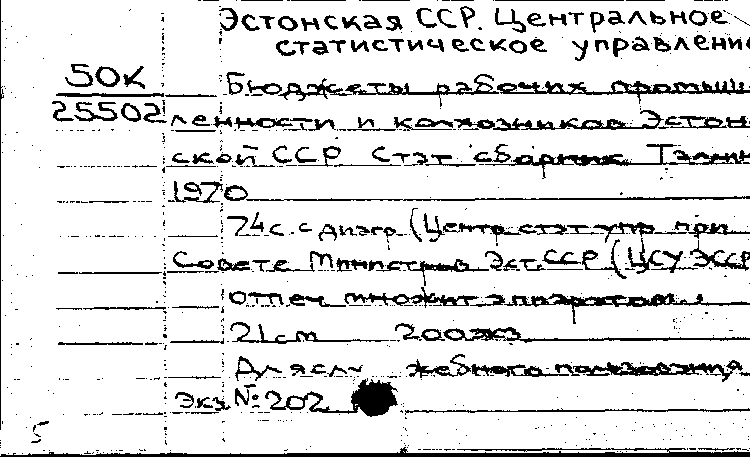 Эстонская ССР. Центральное
статистическое управлени
50к
25502
Бюджеты рабочих промыш
ленности и колхозников Эстон
ской ССР Стат сборник Таллин
1970
74с. с диагр (Центр стат упр при
Совете Министров Эст.ССР (ЦСУ ЭССР
отпеч множит аппаратом.
21см 200экз
Для слу жебного пользования
Экз №202
5